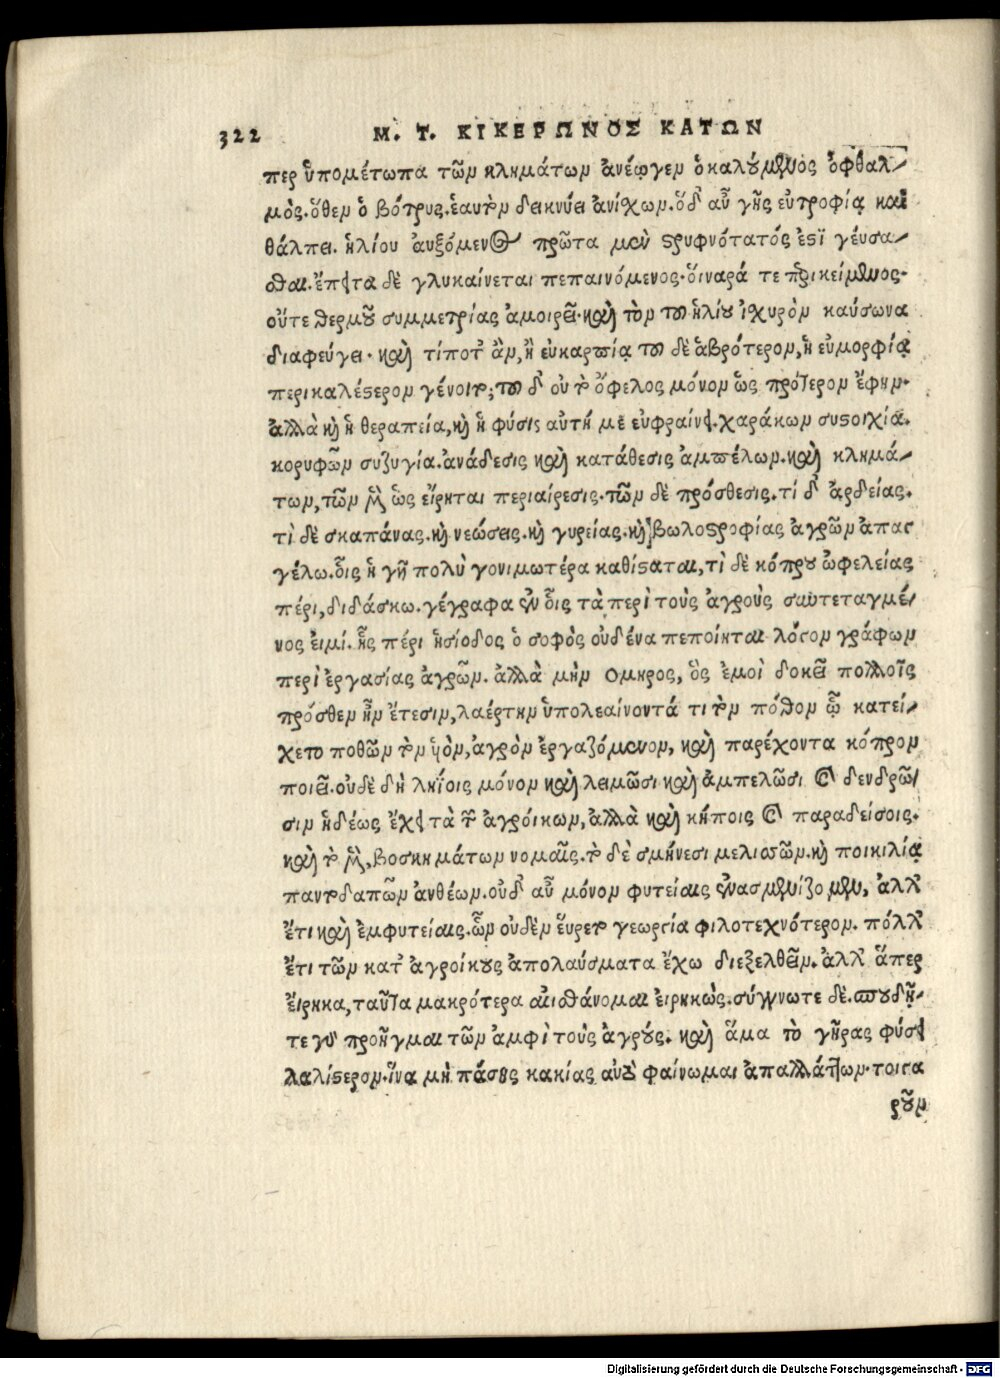 322 Μ. Τ. ΚΙΚΕΡΩΝΟΣ ΚΑΤΩΝ
περ ὑπομέτωπα τῶν κλημάτων ἀνέῳγεν ὁ καλούμενος ὀφθαλ-
μὸς. ὅθεν ὁ βότρυς ἑαυτὸν δεικνύει ἀνίχων. ὅδ' αὖ γῆς εὐτροφίᾳ καὶ
θάλπει ἡλίου αὐξόμενος πρῶτα μὲν στρυφνότατός ἐστὶ γεύσα-
σθαι. ἔπειτα δὲ γλυκαίνεται πεπαινόμενος. ὄιναρά τε περικείμενος.
οὔτε θερμοῦ συμμετρίας ἀμοιρεῖ. καὶ τὸν τοῦ ἡλίου ἰχυρὸν καύσωνα
διαφεύγει. καὶ τίποτ' ἂν, ἢ εὐκαρπίᾳ τοῦ δὲ ἁβρότερον, ἢ εὐμορφίᾳ
περικαλέστερον γένοιτο; τοῦ δ' οὐ τὸ ὄφελος μόνον ὡς πρότερον ἔφην.
ἀλλὰ καὶ ἡ θεραπεία, καὶ ἡ φύσις αὐτή με εὐφραίνει. χαράκων συστοιχία.
κορυφῶν συζυγία. ἀνάδεσις καὶ κατάθεσις ἀμπέλων. καὶ κλημά-
των, τῶν μὲν ὡς εἴρηται περιαίρεσις. τῶν δὲ πρόσθεσις. τί δ' ἀρδείας.
τὶ δὲ σκαπάνας. καὶ νεώσεις. καὶ γυρείας. καὶ βωλοστροφίας ἀγρῶν ἀπαγ
γέλω. οἷς ἡ γῆ πολὺ γονιμωτέρα καθίσταται, τὶ δὲ κόπρου ὠφελείας
πέρι, διδάσκω. γέγραφα ἐν οἷς τὰ περὶ τοὺς ἀγροὺς συντεταγμέ-
νος εἰμί. ἧς πέρι ἡσίοδος ὁ σοφὸς οὐδένα πεποίηται λόγον γράφων
περὶ ἐργασίας ἀγρῶν. ἀλλὰ μὴν Ομηρος, ὃς ἐμοὶ δοκεῖ πολλοῖς
πρόσθεν ἦν ἔτεσιν, λαέρτην ὑπολεαίνοντά τι τὸν πόθον ᾧ κατεί-
χετο ποθῶν τὸν ὑιὸν, ἀγρὸν ἐργαζόμενον, καὶ παρέχοντα κόπρον
ποιεῖ. οὐδὲ δὴ ληΐοις μόνον καὶ λειμῶσι καὶ ἀμπελῶσι καὶ δενδρῶ-
σιν ἡδέως ἔχει τὰ τῶν ἀγρόικων, ἀλλὰ καὶ κήποις καὶ παραδείσοις.
καὶ τὸ μὲν, βοσκημάτων νομαῖς. τὸ δὲ σμήνεσι μελισσῶν. καὶ ποικιλίᾳ
παντοδαπῶν ἀνθέων. οὐδ' αὖ μόνον φυτείαις ἐνασμενίζομεν, ἀλλ'
ἔτι καὶ ἐμφυτείαις. ὧν οὐδὲν εὕρετο γεωργία φιλοτεχνότερον. πόλλ'
ἔτι τῶν κατ' ἀγροίκους ἀπολαύσματα ἔχω διεξελθεῖν. ἀλλ' ἅπερ
εἴρηκα, ταῦτα μακρότερα αἰσθάνομαι εἰρηκὼς. σύγγνωτε δὲ. σπουδῆ-
τε γὰρ προῆγμαι τῶν ἀμφὶ τοὺς ἀγρούς. καὶ ἅμα τὸ γῆρας φύσει
λαλίστερον. ἵνα μὴ πάσης κακίας αὐτὸ φαίνωμαι ἀπαλλάττων. τοιγα
ροῦν